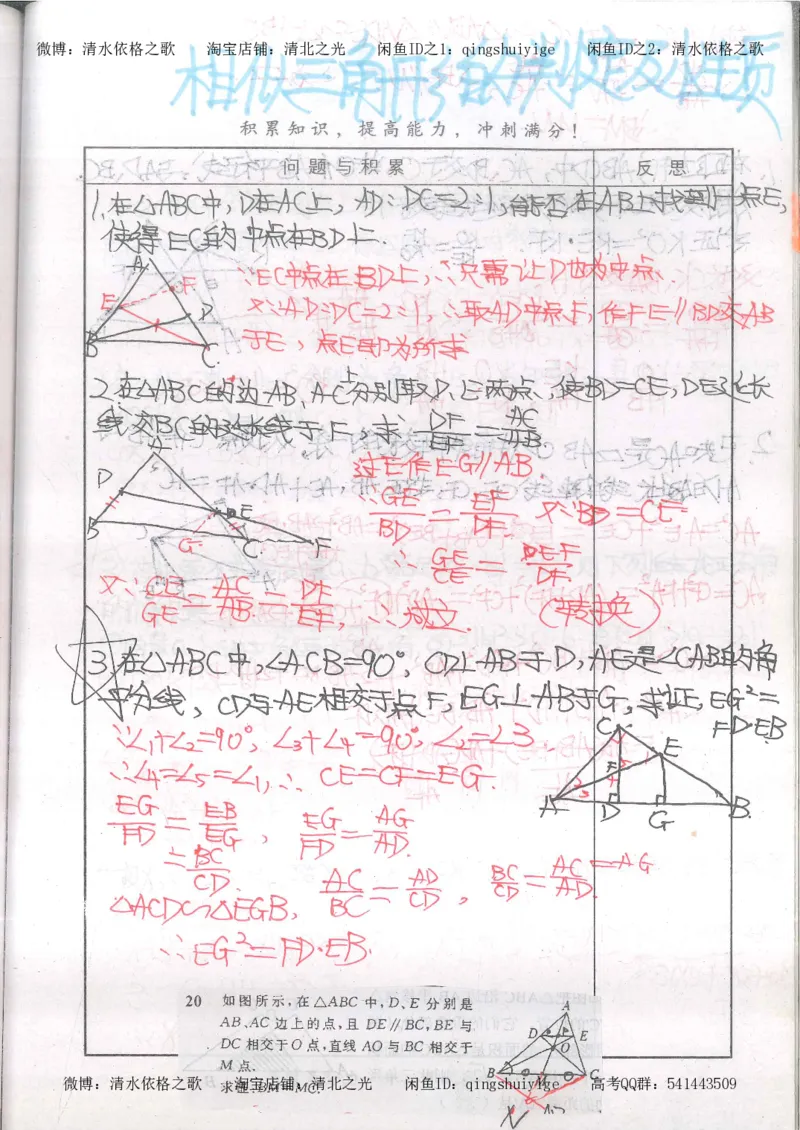 微博：清水依格之歌 淘宝店铺：清北之光 闲鱼ID之1：qingshuiyige 闲鱼ID之2：清水依格之歌
相似三角形的判定及性质
积累知识，提高能力，冲刺满分！
问题与积累 反思
1.在△ABC中，D在AC上，AD：DC=2：1，能否在AB上找到一点E，
使得EC的中点在BD上.
∵EC中点在BD上，∴只需让D也为中点、
又∵AD：DC=2：1，∴取AD中点F，作FE∥BD交AB
于E，点E即为所求
A
E F
D
B
C
2.在△ABC的边AB、AC分别取D、E两点、使BD=CE，DE延长
线交BC的延长线于F，求 DF/EF = AC/AB
过E作EG∥AB
A
D
E
B
G C F
∵ GE/BD = EF/DF 又∵BD=CE
∴ GE/CE = EF/DF
又∵ CE/GE = AC/AB = DF/EF，∴成立. （转换）
3.在△ABC中，∠ACB=90°，CD⊥AB于D，AE是∠CAB的角
平分线，CD与AE相交于点F，EG⊥AB于G，求证，EG²=
FD·EB
∵∠1+∠2=90°，∠3+∠4=90°，∠2=∠3
∴∠4=∠5=∠1，∴CE=CF=EG.
C
E
F
A D G B
EG/FD = EB/EG，EG/FD = AG/AD.
= BC/CD. AC/BC = AD/CD， BC/CD = AC/AD =AG
△ACD∽△EGB，
∴EG²=FD·EB.
20 如图所示，在△ABC中，D、E分别是
AB、AC边上的点，且DE∥BC，BE与
DC相交于O点，直线AO与BC相交于
M点、
求证：BM=MC.
A
D E
O
B C
N M
微博：清水依格之歌 淘宝店铺：清北之光 闲鱼ID：qingshuiyige 高考QQ群：541443509